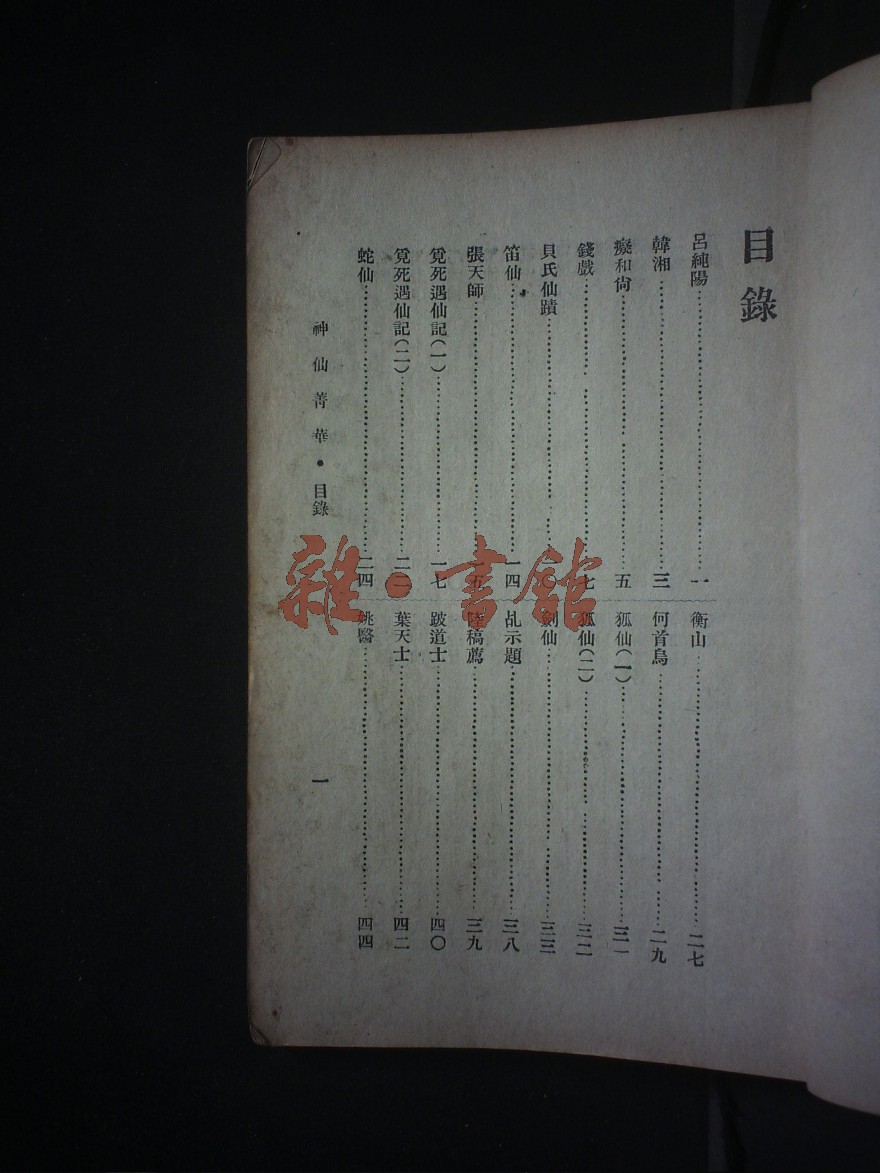 目錄
呂純陽……一
韓湘……三
癡和尚……五
錢戲……七
貝氏仙蹟……
笛仙……一四
張天師……五
覓死遇仙記(一)……一七
覓死遇仙記(二)……二
蛇仙……二四
衡山……二七
何首烏……二九
狐仙(一)……三一
狐仙(二)……三二
劍仙……三三
乩示題……三八
陸稿薦……三九
跛道士……四〇
葉天士……四二
姚醫……四四
神仙菁華·目錄
一
雜·書館